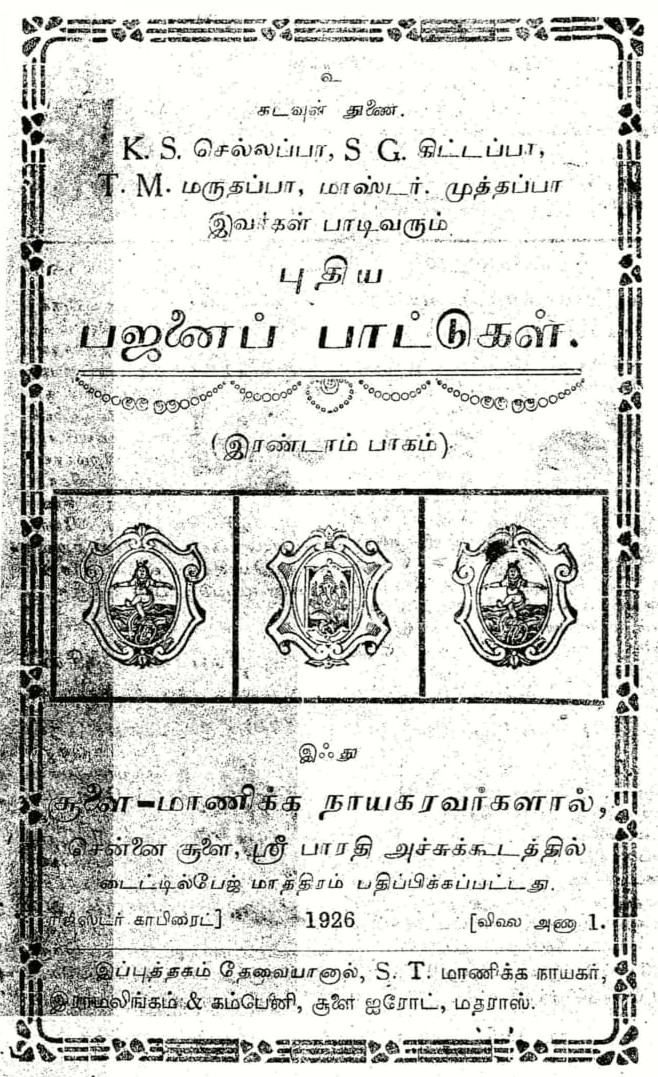 உ
கடவுள் துணை.
K. S. செல்லப்பா, S G. கிட்டப்பா,
T. M. மருதப்பா, மாஸ்டர். முத்தப்பா
இவர்கள் பாடிவரும்
புதிய
பஜனைப் பாட்டுகள்.
(இரண்டாம் பாகம்)
இஃது
சூளை-மாணிக்க நாயகரவர்களால்,
சென்னை சூளை, ஸ்ரீ பாரதி அச்சுக்கூடத்தில்
டைட்டில்பேஜ் மாத்திரம் பதிப்பிக்கப்பட்டது.
ரிஜிஸ்டர் காபிரைட்] 1926 [விலை அணா 1.
இப்புத்தகம் தேவையானால், S. T. மாணிக்க நாயகர்,
இராமலிங்கம் & கம்பெனி, சூளை ஐரோட், மதராஸ்.